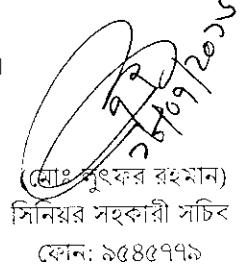 ২৮/০৭/২০১৬
(মোঃ লুৎফর রহমান)
সিনিয়র সহকারী সচিব
ফোন: ৯৫৪৫৭৭৯